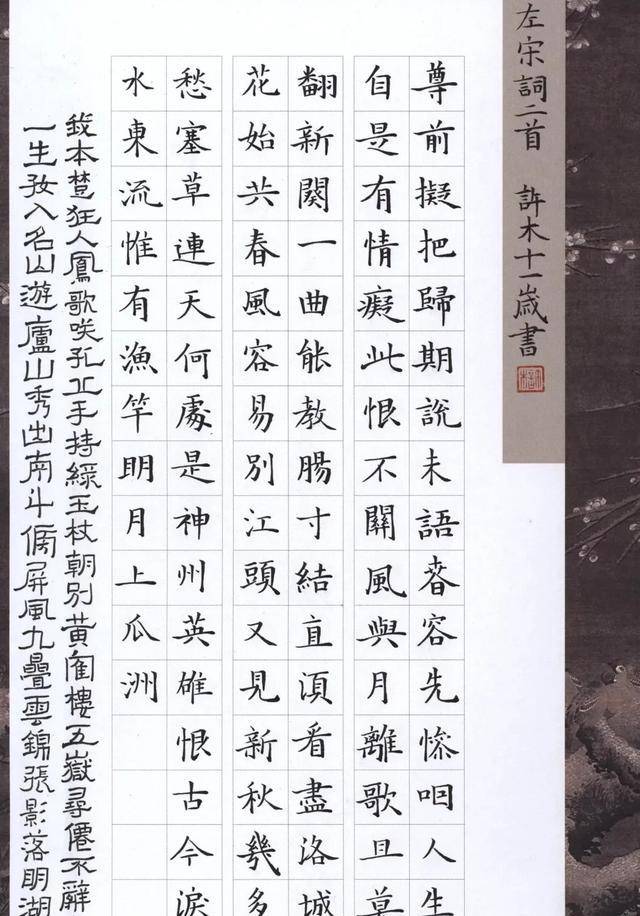 左宋詞二首 許木十一歲書
尊前擬把歸期說未語春容先慘咽人生
自是有情癡此恨不關風與月離歌且莫
翻新闋一曲能教腸寸結直須看盡洛城
花始共春風容易別江頭又見新秋幾多
愁塞草連天何處是神州英雄恨古今淚
水東流惟有漁竿明月上瓜洲
我本楚狂人鳳歌咲孔丘手持綠玉杖朝別黃寉樓五嶽尋僊不辭
一生好入名山遊廬山秀出南斗傍屏風九疊雲錦張影落明湖